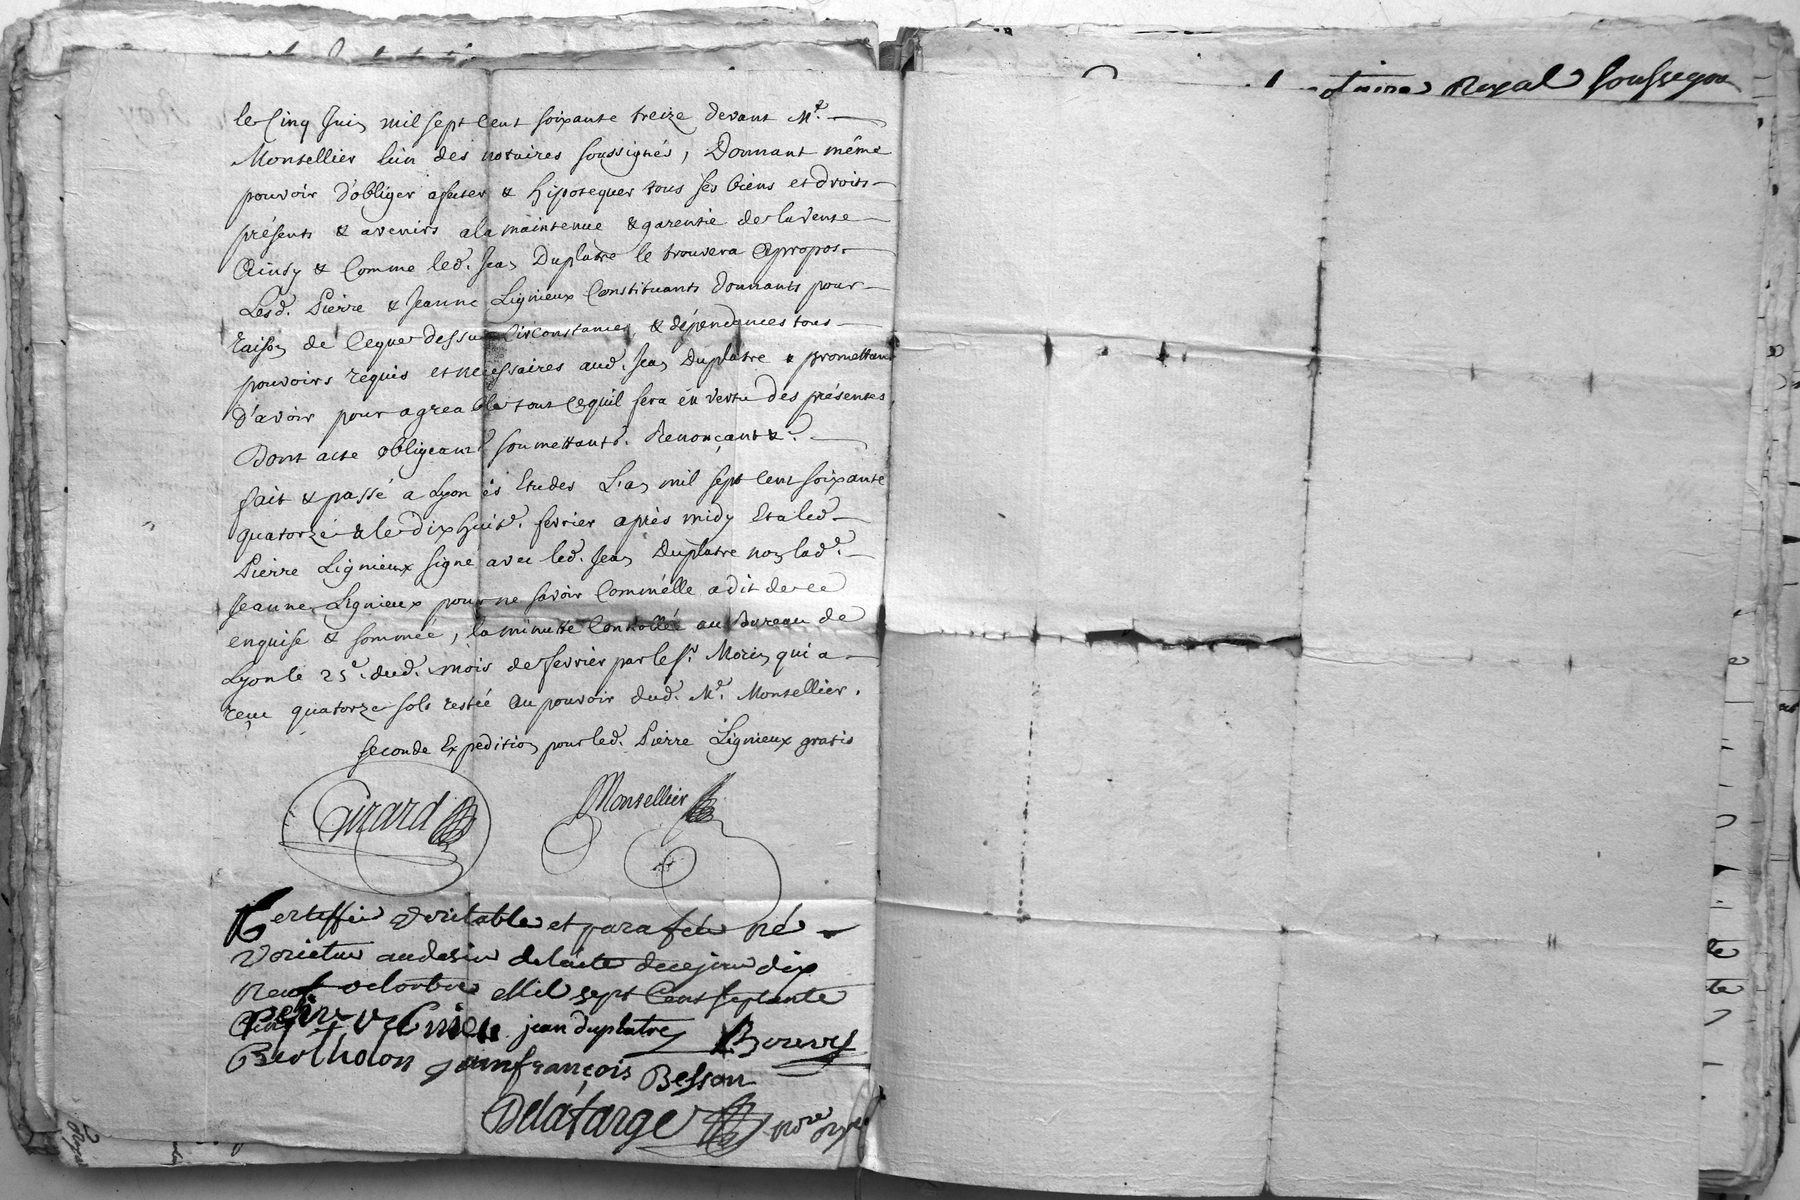 otaire Royal soussigne
le Cinq Juin mil sept cent soixante treize devant Me.
Montellier l'un des notaires soussignés, Donnant même
pouvoir d'obliger afecter & hipotequer tous ses biens et droits
présents & avenirs a la maintenue & garentie de la vente
Ainsy & Comme led. Jean Duplatre le trouvera apropos.
Lesd. Pierre & Jeanne Lignieux Constituants donnants pour
raison de Ceque dessus Circonstances & dépendances tous
pouvoirs requis et necessaires aud. Jean Duplatre & promettant
d'avoir pour agreable tout Cequil sera en vertu des présentes
Dont acte obligeant soumettant. Renonçant &c.
fait & passé a Lyon ès Etudes L'an mil sept cent soixante
quatorze & le dix huit fevrier après midy Et a led
Pierre Lignieux signé avec led. Jean Duplatre non lad.e
Jeanne Lignieux pour ne savoir Comm'elle a dit de ce
enquise & sommée, la minutte Controllée au Bureau de
Lyon le 25e. dud. mois de fevrier par le Sr. Morin qui a
reçu quatorze sols restée au pouvoir dud. Me. Montellier.
seconde Expedition pour led. Pierre Lignieux gratis
Girard Montellier
Certiffié veritable et paraféé né
varietur au desir de lacte de ce jour dix
neuf octobre Mil sept Cent septante
Cinq jean duplatre
Bertholon jean françois Besson
Delafarge nore